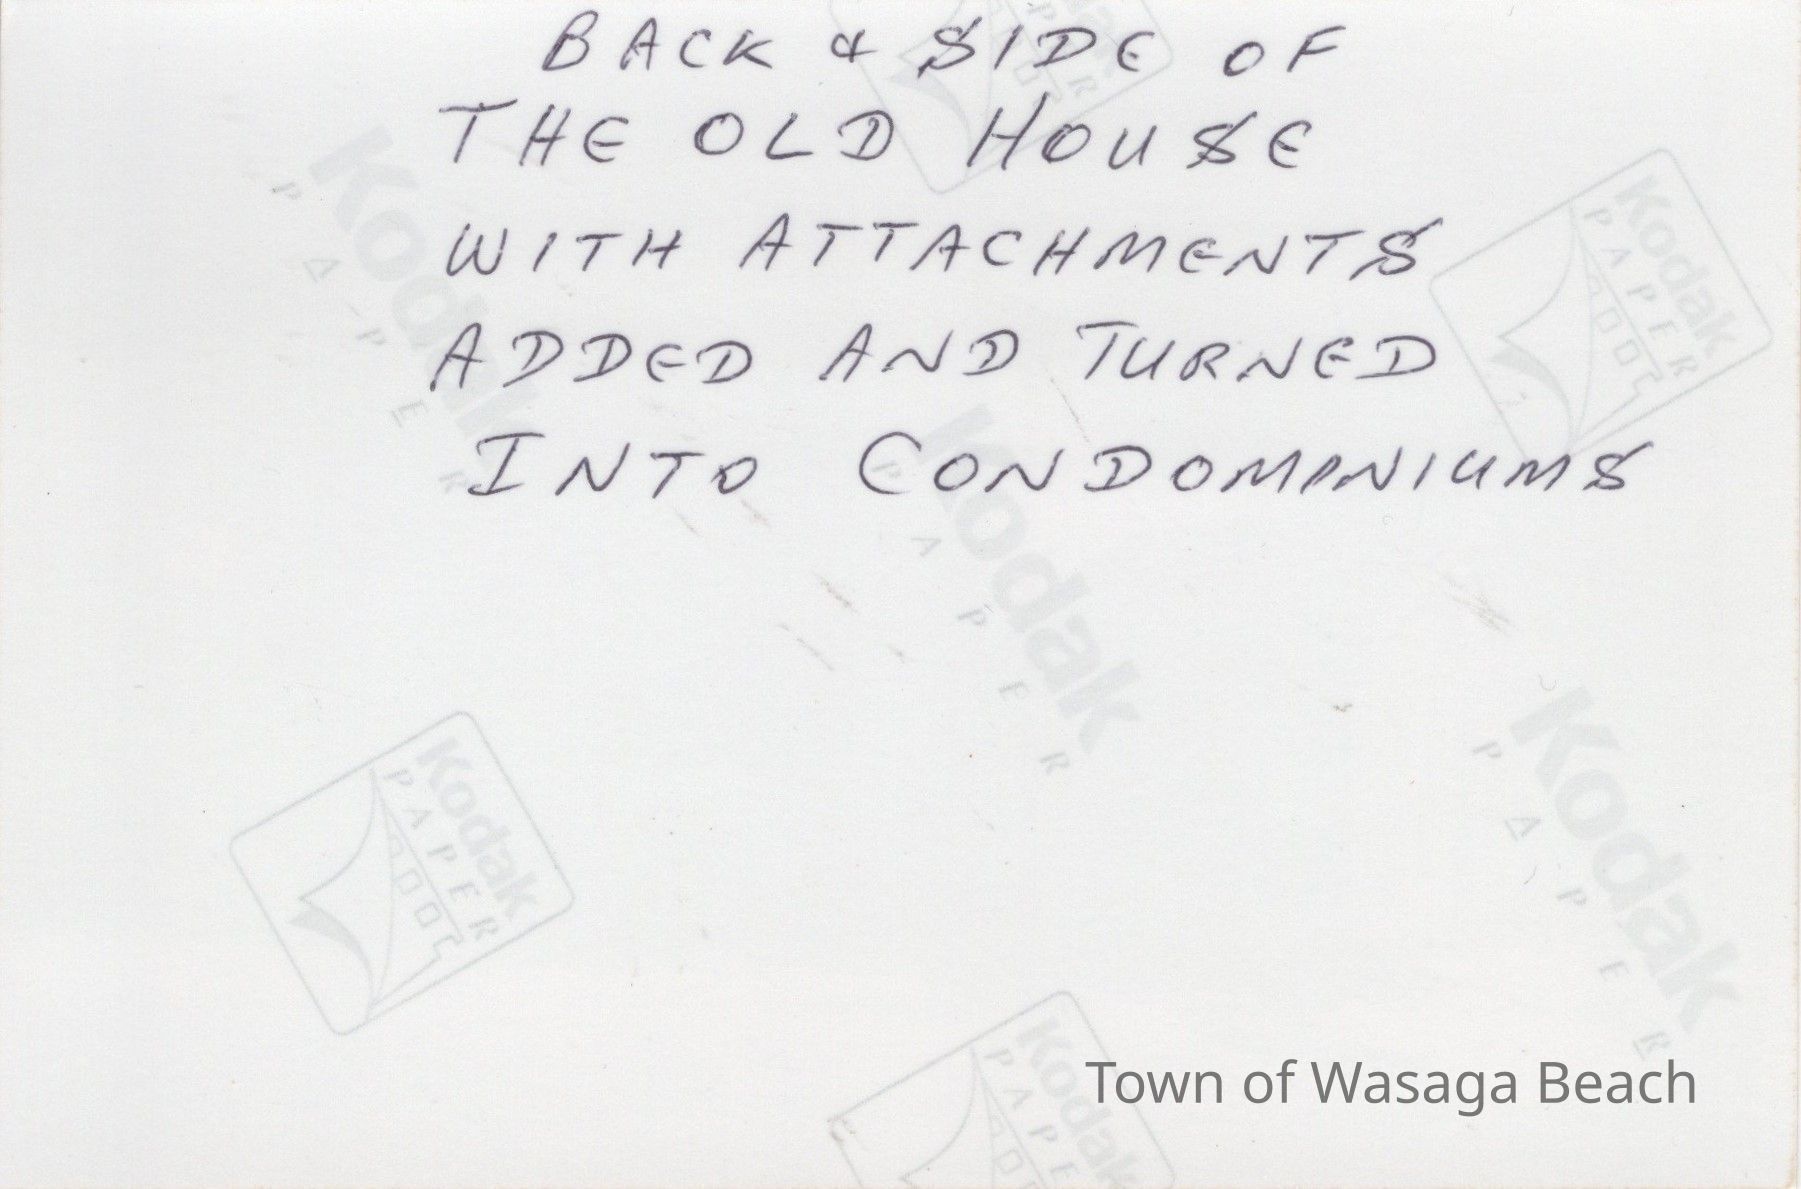 BACK & SIDE OF
THE OLD HOUSE
WITH ATTACHMENTS
ADDED AND TURNED
INTO CONDOMINIUMS
Kodak
PAPER
Kodak
PAPER
Kodak
PAPER
Kodak
PAPER
Kodak
PAPER
Kodak
PAPER
Town of Wasaga Beach